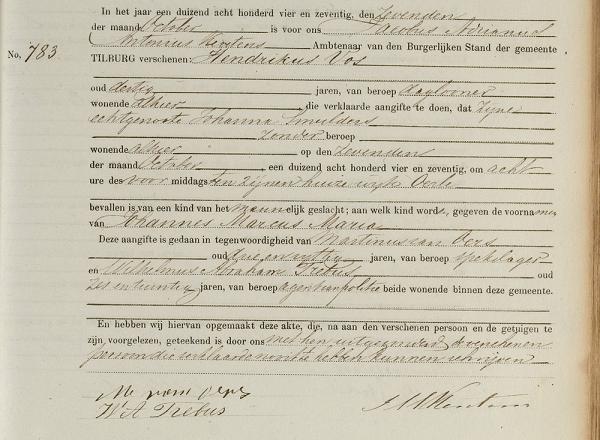 In het jaar een duizend acht honderd vier en zeventig, den Zevenden
der maand October is voor ons Jacobus Adrianus
Antonius Ambtenaar van den Burgerlijken Stand der gemeente
No. 783
TILBURG verschenen: Hendrikus Vos
oud dertig jaren, van beroep daglooner
wonende alhier, die verklaarde aangifte te doen, dat Zijne
echtgenoote Johanna Smulders
Zonder beroep
wonende alhier op den Zevenden
der maand October, een duizend acht honderd vier en zeventig, om acht
ure des voor middags ten zijnen huize wijk
bevallen is van een kind van het mannelijk geslacht; aan welk kind wordt, gegeven de voornamen
van Johannes Marcus Maria
Deze aangifte is gedaan in tegenwoordigheid van Martinus van Oers
oud jaren, van beroep
en Wilhelmus Abraham Trebus oud
zes en twintig jaren, van beroep agent van politie beide wonende binnen deze gemeente.
En hebben wij hiervan opgemaakt deze akte, die, na aan den verschenen persoon en de getuigen te
zijn voorgelezen, geteekend is door ons met hen uitgezonderd de verschenen
persoon die verklaarde niet te hebben kunnen schrijven
M. van Oers
W A Trebus